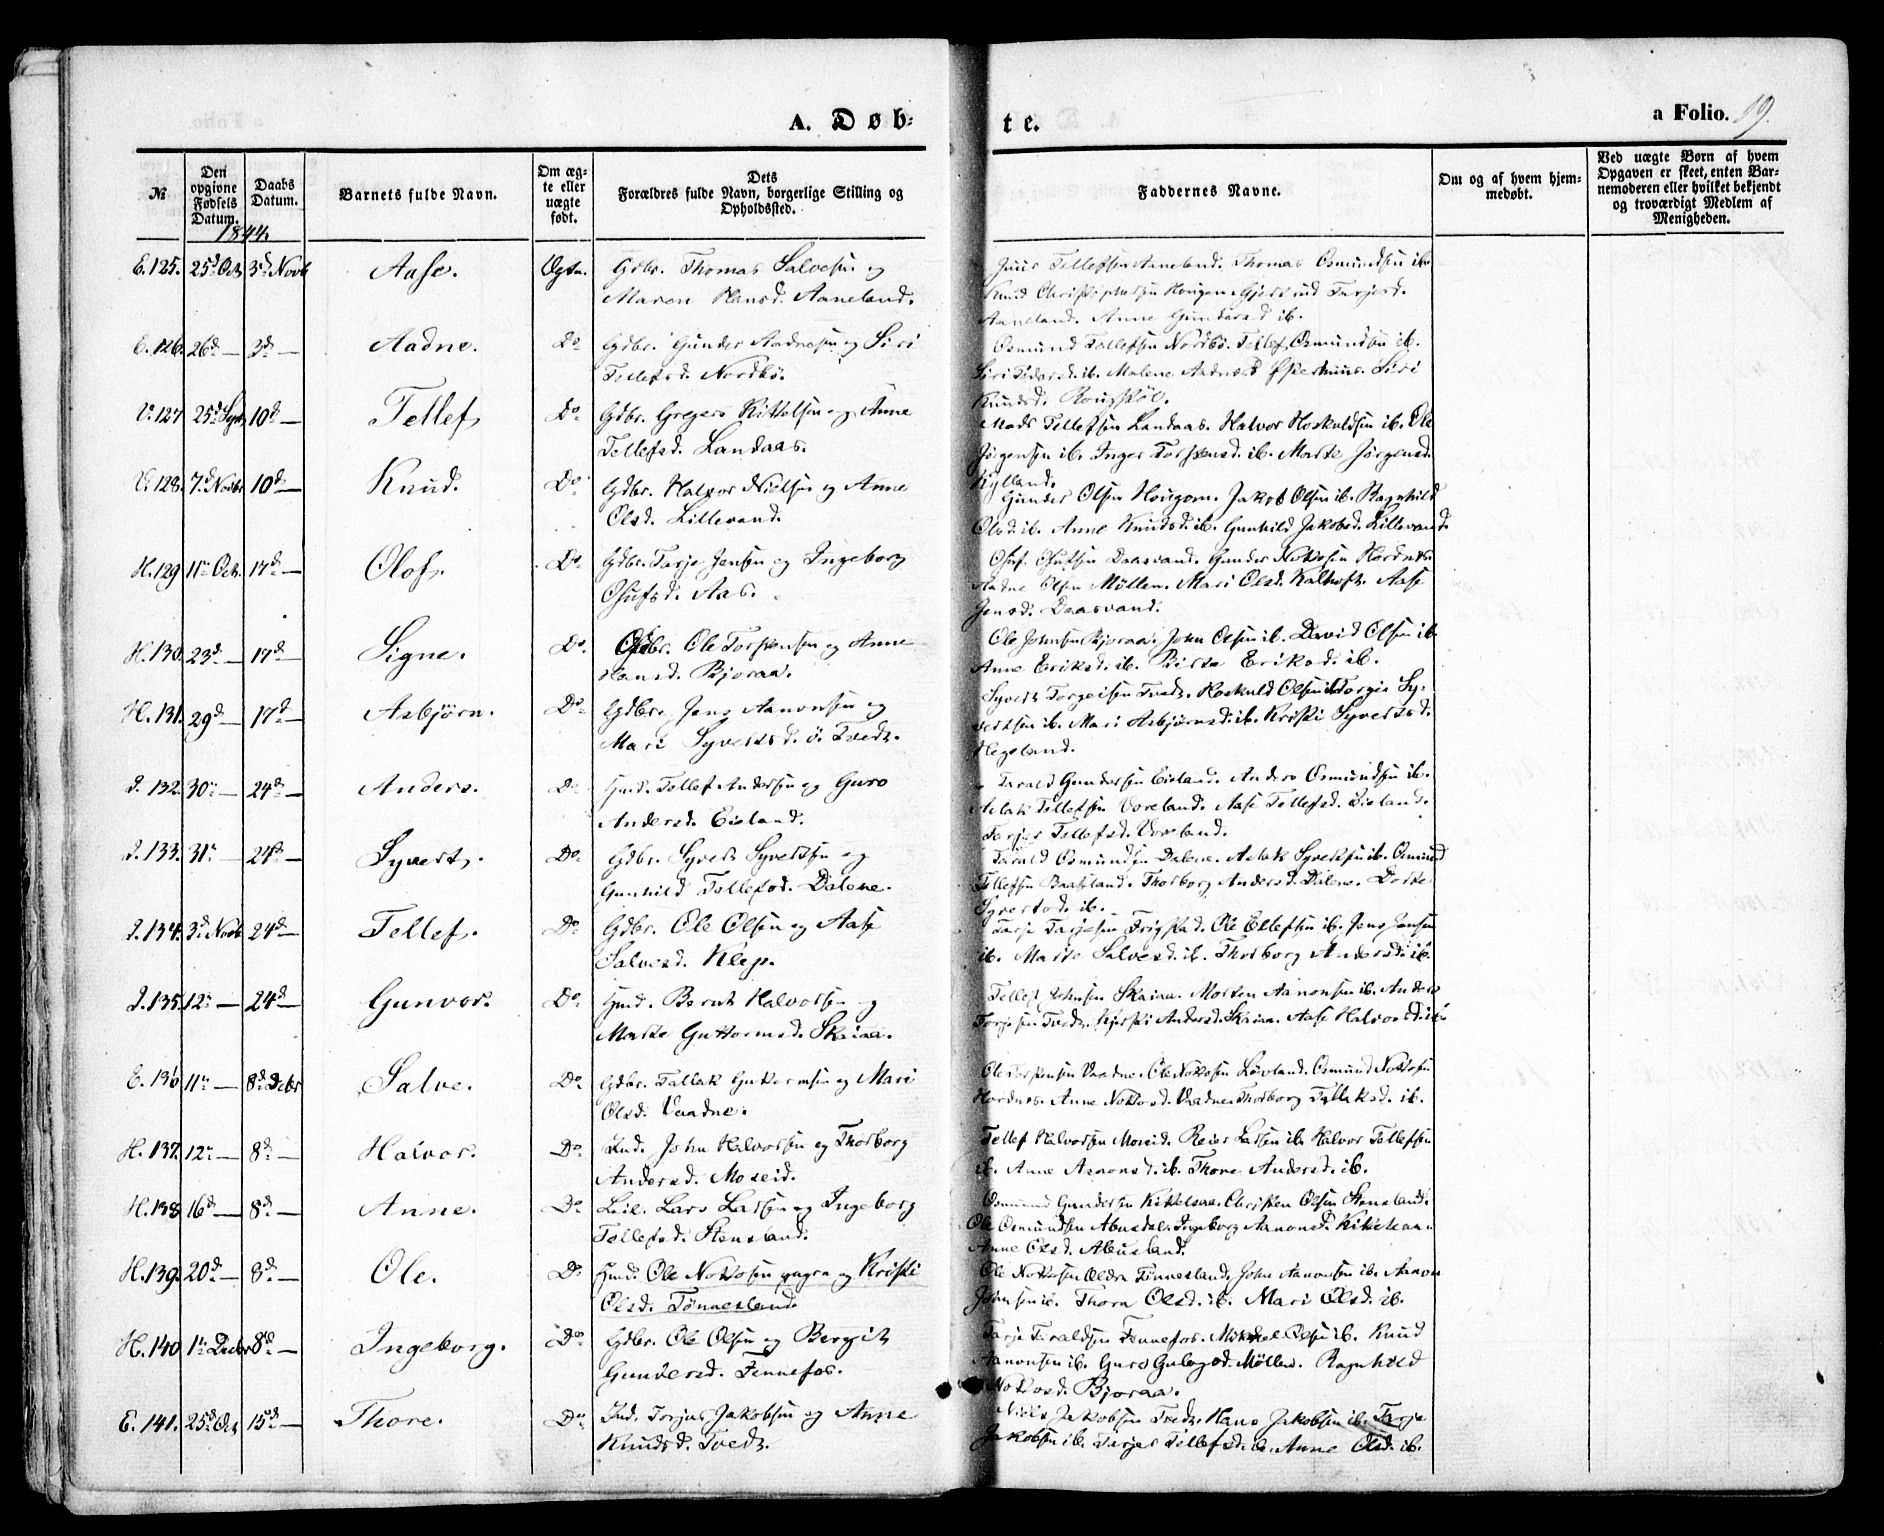 A. Døb-
te.
a Folio. 19.
№
Den opgivne Fødsels Datum.
Daabs Datum.
Barnets fulde Navn.
Om ægte eller uægte født.
Dets Forældres fulde Navn, borgerlige Stilling og Opholdssted.
Faddernes Navne.
Om og af hvem hjemmedøbt.
Ved uægte Børn af hvem Opgaven er skeet, enten Barnemoderen eller hvilket bekjendt og troværdigt Medlem af Menigheden.
1844.
E. 125. 25d Oct 3d Novb Aase. Ægte. Gdbr. Thomas Salvesen og
Maren Hansd. Aaneland.
Tellefsen Aaneland. Thomas Osmundsen ib.
Knud Christophersen Hougen. Tarjesd.
Aaneland. Anne Gundersd ib.
E. 126. 26d — 3d — Aadne. Do Gdbr. Gunder Aadnesen og Siri
Tellefsd. Nordbø.
Osmund Tellefsen Nordbø. Tellef Osmundsen ib.
Siri Pedersd. ib. Malene Aadnesd Siri
Knudsd.
V. 127 25d Sept 10d — Tellef. Do Gdbr. Gregers Kittelsen og Anne
Tellefsd. Landaas.
Mads Tellefsen Landaas. Halvor Hoskuldsen ib. Ole
Jørgensen ib. Inger Torstensd. ib. Marte Jørgensd.
Kylland.
V. 128. 7d Novbr 10d — Knud. Do Gdbr. Halvor Nielsen og Anne
Olsd. Lillevand.
Gunder Olsen Hougom. Jakob Olsen ib. Ragnhild
Olsd. ib. Anne Knudsd. ib. Gunhild Jakobsd. Lillevand.
H. 129 11te Oct. 17d — Olof. Do Gdbr. Tarje Jensen og Ingeborg
Osufsd. Aas.
Osuf Osufsen Daasvand. Gunder Notosen Hordnes.
Aadne Olsen Møllen. Mari Olsd. Kalhoft. Aase
Jensd. Daasvand.
H. 130. 23d — 17d — Signe. Do Gdbr. Ole Torstensen og Anne
Hansd. Bjoraa.
Ole Johnsen Bjoraa. John Olsen ib. David Olsen ib.
Anne Eriksd. ib. Birte Eriksd. ib.
H. 131. 29d — 17d — Asbjørn. Do Gdbr. Jens Aanonsen og
Mari Syvertsd. ö. Tvedt.
Syvert Torgeisen Tvedt. Hoskuld Olsen ib. Torgeis Sy-
vertsen ib. Mari Asbjørnsd. ib. Kristi Syvertsd.
Hegeland.
I. 132. 30te — 24d — Anders. Do Hmd. Tellef Andersen og Guro
Andersd. Eieland.
Tarald Gundersen Eieland. Anders Osmundsen ib.
Aslak Tellefsen Voreland. Aase Tellefsd. Eieland.
Tarjer Tellefsd. Voreland.
I. 133. 31te — 24d — Syvert. Do Gdbr. Syvert Syvertsen og
Gunhild Tellefsd. Dalene.
Tarald Osmundsen Dalene. Aslak Syvertsen ib. Osmund
Tellefsen Thorborg Andersd. Dalene. Dorte
Syvertsd. ib.
I. 134. 3d Novb. 24d — Tellef. Do Gdbr. Ole Olsen og Aase
Salvesd. Klep.
Tarje Tarjesen Frigstad. Ole Ellefsen ib. Jens Jensen
ib. Marte Salvesd. ib. Thorborg Andersd. ib.
I. 135. 12te — 24d — Gunvor. Do Hmd. Bernt Halvorsen og
Marte Guttormsd. Skaiaa.
Tellef Johnsen Skaiaa. Morten Aanonsen ib. Anders
Torjesen Tvedt. Kjersti Andersd. Skaiaa. Aase Halvorsd. ib.
E. 136 11te — 8d Decbr Salve. Do Gdbr. Tallak Guttormsen og Mari
Olsd. Vaadne.
Ole Torstensen Vaadne. Ole Notosen Løvland. Osmund Notosen
Hordnes. Anne Notosd. Vaadne. Thorborg Tallaksd. ib.
H. 137. 12te — 8d — Halvor. Do Ind. John Halvorsen og Thorborg
Andersd. Moseid.
Tellef Halvorsen Moseid. Reier Larsen ib. Halvor Tellefsen
ib. Anne Aanonsd. ib. Thore Andersd. ib.
H. 138 16d — 8d — Anne. Do Leil. Lars Larsen og Ingeborg
Tellefsd. Stensland.
Osmund Gundersen Kittelsaa. Christen Olsen Stensland.
Ole Osmundsen Abusdal. Ingeborg Aanonsd. Kittelsaa.
Anne Olsd. Abusland.
H. 139. 20d — 8d — Ole. Do Hmd. Ole Notosen yngre og Kristi
Olsd. Tønnesland.
Ole Notosen ældre Tønnesland. John Aanonsen ib. Aanon
Johnsen ib. Thora Olsd. ib. Mari Olsd. ib.
H. 140 1te Decbr 8d — Ingeborg. Do Gdbr. Ole Olsen og Bergit
Gundersd. Fennefos.
Tarje Taraldsen Fennefos. Mikkel Olsen ib. Knud
Aanonsen ib. Guro Gulagsd. Møllen. Ragnhild
Notosd. Bjoraa.
E. 141. 25d Oct 15d — Thore. Do Ind. Torjus Jakobsen og Anne
Knudsd. Tvedt.
Niels Jakobsen Tvedt. Hans Jakobsen ib. Tarje
Jakobsen ib. Tarjer Tellefsd. ib. Anne Olsd. ib.